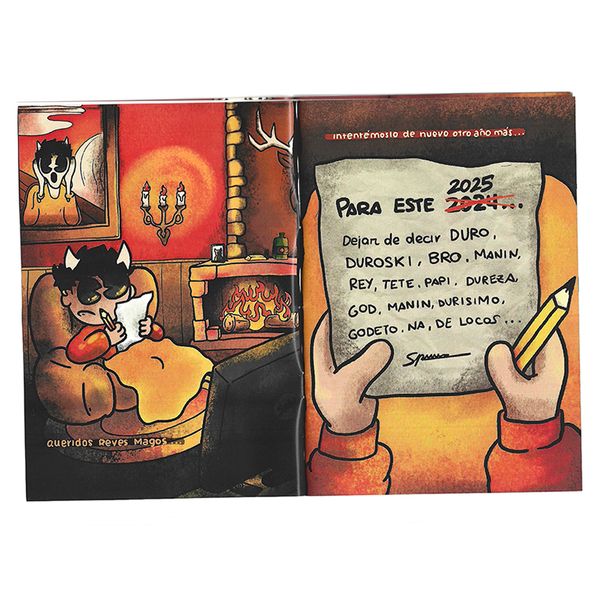 Queridos Reyes Magos...
intentémoslo de nuevo otro año más...
2025
PARA ESTE 2024...
Dejar de decir DURO,
DUROSKI, BRO, MANIN,
REY, TETE, PAPI, DUREZA,
GOD, MANIN, DURISIMO,
GODETO, NA, DE LOCOS...